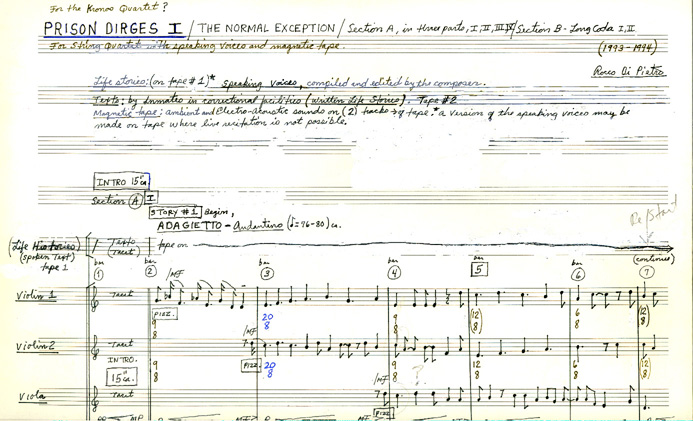 For the Kronos Quartet?
PRISON DIRGES I / THE NORMAL EXCEPTION / Section A, in three parts, I, II, III, IV / Section B - Long Coda I, II
For String Quartet with speaking voices and magnetic tape.
(1993-1994)
Rocco Di Pietro
Life stories: (on tape #1)* speaking voices, compiled and edited by the composer.
Texts: by Inmates in correctional facilities (written Life Stories). Tape #2
Magnetic tape: ambient and Electro-Acoustic sounds on (2) tracks of tape. * a version of the speaking voices may be
made on tape where live recitation is not possible.
INTRO 15" ca.
Section A I
STORY #1 Begin,
ADAGIETTO - Andantino (♩=76-80) ca.
Re/Start
(Life Histories) Texts tape on
(spoken Text) (tacet) (continue)
tape 1
bar bar bar bar bar bar
1 2 3 4 5 6 7
mf
Violin 1 Tacet
pizz. 9/8 20/8 9/8 (12/8) 6/8 (12/8)
mf
Violin 2 Tacet
INTRO. 9/8 pizz. 20/8 9/8 ? 12/8 6/8 12/8
15" ca.
mf
Viola Tacet
pizz.